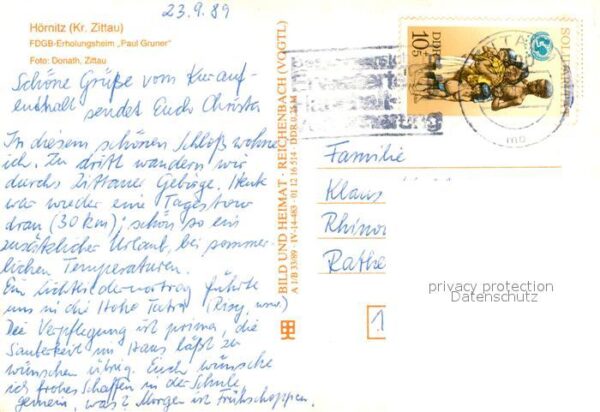 23.9.89
Hörnitz (Kr. Zittau)
FDGB-Erholungsheim „Paul Gruner"
Foto: Donath, Zittau
Schöne Grüße vom Kurauf-
enthalt sendet Euch Christa
In diesem schönen Schloß wohne
ich. Zu dritt wandern wir
durchs Zittauer Gebirge. Heute
war wieder eine Tagestour
dran (30 km); schön so ein
zusätzlicher Urlaub, bei sommer-
lichen Temperaturen.
Ein Lichtbildervortrag führte
uns in die Hohe Tatra (Rysy, usw)
Die Verpflegung ist prima, die
Sauberkeit im Haus läßt zu
wünschen übrig. Euch wünsche
ich frohes Schaffen in der Schule
gemein, was? Morgen ist Frühschoppen.
BILD UND HEIMAT · REICHENBACH (VOGTL)
A 1/B 33/89 · IV-14-483 · 01 12 16 514 · DDR 0,25 M
DDR
10+5
Familie
Klaus
Rhino
Rathe
privacy protection
Datenschutz
1